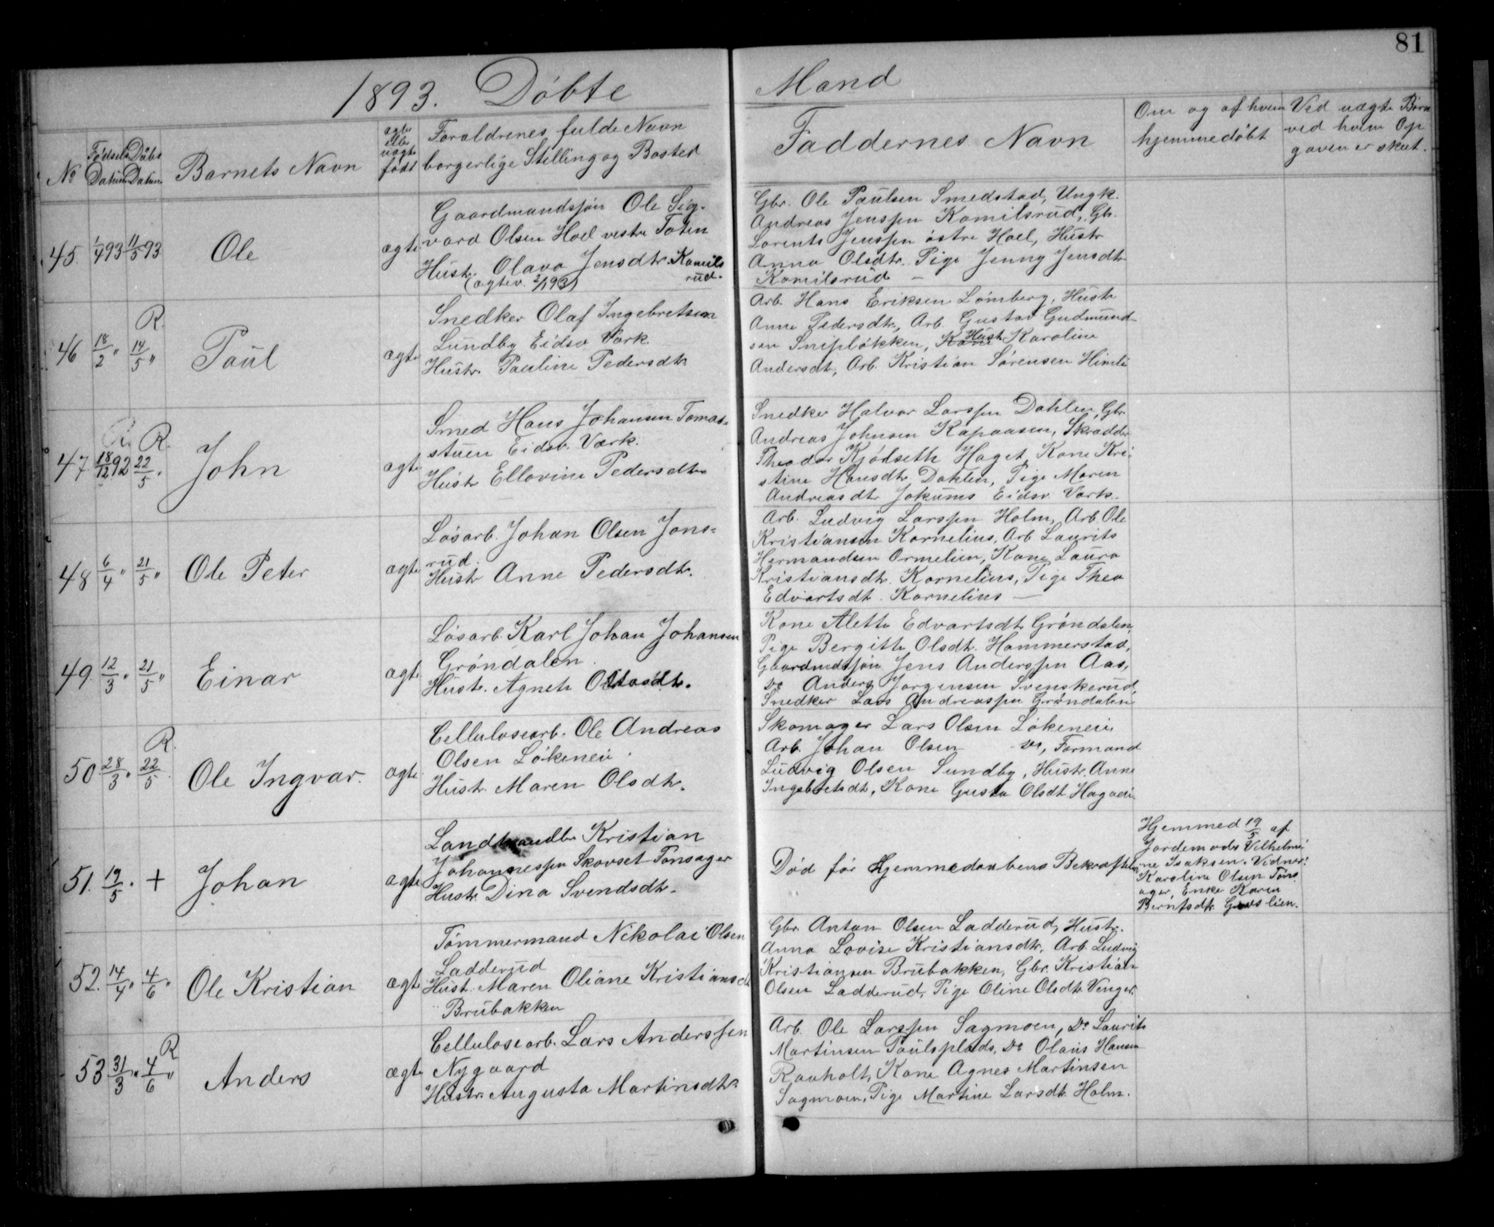 81
1893. Döbte
Mand
No
Fødsels Datum
Döbs Datum
Barnets Navn
ægte eller uægte födt
Foraldrenes fulde Navn
borgerlige Stilling og Bosted
Faddernes Navn
Om og af hvem
hjemmedöbt
Ved uægte Börn
ved hvem Op
gaven er skeet.
45 1/4 93 11/5 93 Ole ægte
Gaardmandssön Ole Sig-
vard Olsen Hoel vestre Toten
Hustr. Olava Jensdtr. Komils
rud.
(ægtev. 93)
Gbr. Ole Paulsen Smedstad, Ungk.
Andreas Jenssen Komilsrud, Gb.
Lorents Jenssen östre Hoel, Hustr
Anna Olsdtr. Pige Jenny Jensdtr
Komilsrud —
46 18/2 " R 14/5 " Paul ægte
Snedker Olaf Ingebretsen
Lundby Eidsv Værk
Hustr. Pauline Pedersdtr
Arb. Hans Eriksen Lömberg, Hustr
Anne Pedersdtr, Arb. Gustav Gudmund-
sen Sneplökken, Hustr Karoline
Andersdt, Arb. Kristian Sörensen Himle
47 R 18/12 92 R 22/5 " John ægte
Smed Hans Johansen Tomas-
stuen Eidsv. Værk.
Hustr Ellovine Pedersdtr
Snedker Halvor Larssen Dahlen, Gbr
Andreas Johnsen Kapaasen, Skrædder
Theodor Kjödseth Haget, Kone Kri
stine Hansdtr Dahlen, Pige Maren
Andreasdtr Jokums Eidsv Værk.
48 6/4 " 21/5 " Ole Peter ægte
Lösarb. Johan Olsen Jons-
rud.
Hustr Anne Pedersdtr.
Arb. Ludvig Larssen Holm, Arb Ole
Kristiansen Kornelius, Arb Laurits
Hermandsen Ormelien, Kone Laura
Kristiansdtr. Kornelius, Pige Thea
Edvartsdt. Kornelius —
49 12/3 " 21/5 " Einar ægte
Lösarb Karl Johan Johansen
Gröndalen.
Hustr. Agnete
Kone Alette Edvartsdt Gröndalen,
Pige Bergitte Olsdt. Hammerstad,
Gaardmdssön Jens Anderssen Aas,
Do Anders Jörgensen Svenskerud,
Snedker Lars Andreassen Gröndalen
50 28/3 " R 22/5 " Ole Ingvar. ægte
Cellulosearb. Ole Andreas
Olsen Lökeneie
Hustr. Maren Olsdtr.
Skomager Lars Olsen Lökeneie,
Arb. Johan Olsen Do, Formand
Ludvig Olsen Sundby, Hustr. Anne
Ingebretsdt, Kone Gusta Olsdt Hagaeie
51. 19/5 " + Johan ægte
Landhandler Kristian
Johannessen Skovset Tönsager
Hustr Dina Svendsdtr.
Död för Hjemmedaabens Bekræftelse
Hjemmed 19/5 af
Jordemoder Vilhelmi
ne Isaksen. Vidner:
Karoline Olsen Töns
ager, Enke Karen
Berntsdtr. Gunslien.
52. 14/4 " 4/6 " Ole Kristian ægte
Tömmermand Nikolai Olsen
Ladderud
Hust. Maren Oliane Kristiansdt
Brubakken
Gbr. Anton Olsen Ladderud, Hustr.
Anna Lovise Kristiansdtr, Arb. Ludvig
Kristiansen Brubakken, Gbr. Kristian
Olsen Ladderud, Pige Oline Olsdtr Venger.
53 31/3 " R 4/6 " Anders ægte
Cellulosearb. Lars Anderssen
Nygaard
Hustr. Augusta Martinsdtr
Arb. Ole Larssen Sagmoen, Do Laurits
Martinsen Paulsplads, Do Olaus Hansen
Raaholt, Kone Agnes Martinsen
Sagmoen, Pige Martine Larsdt Holm.